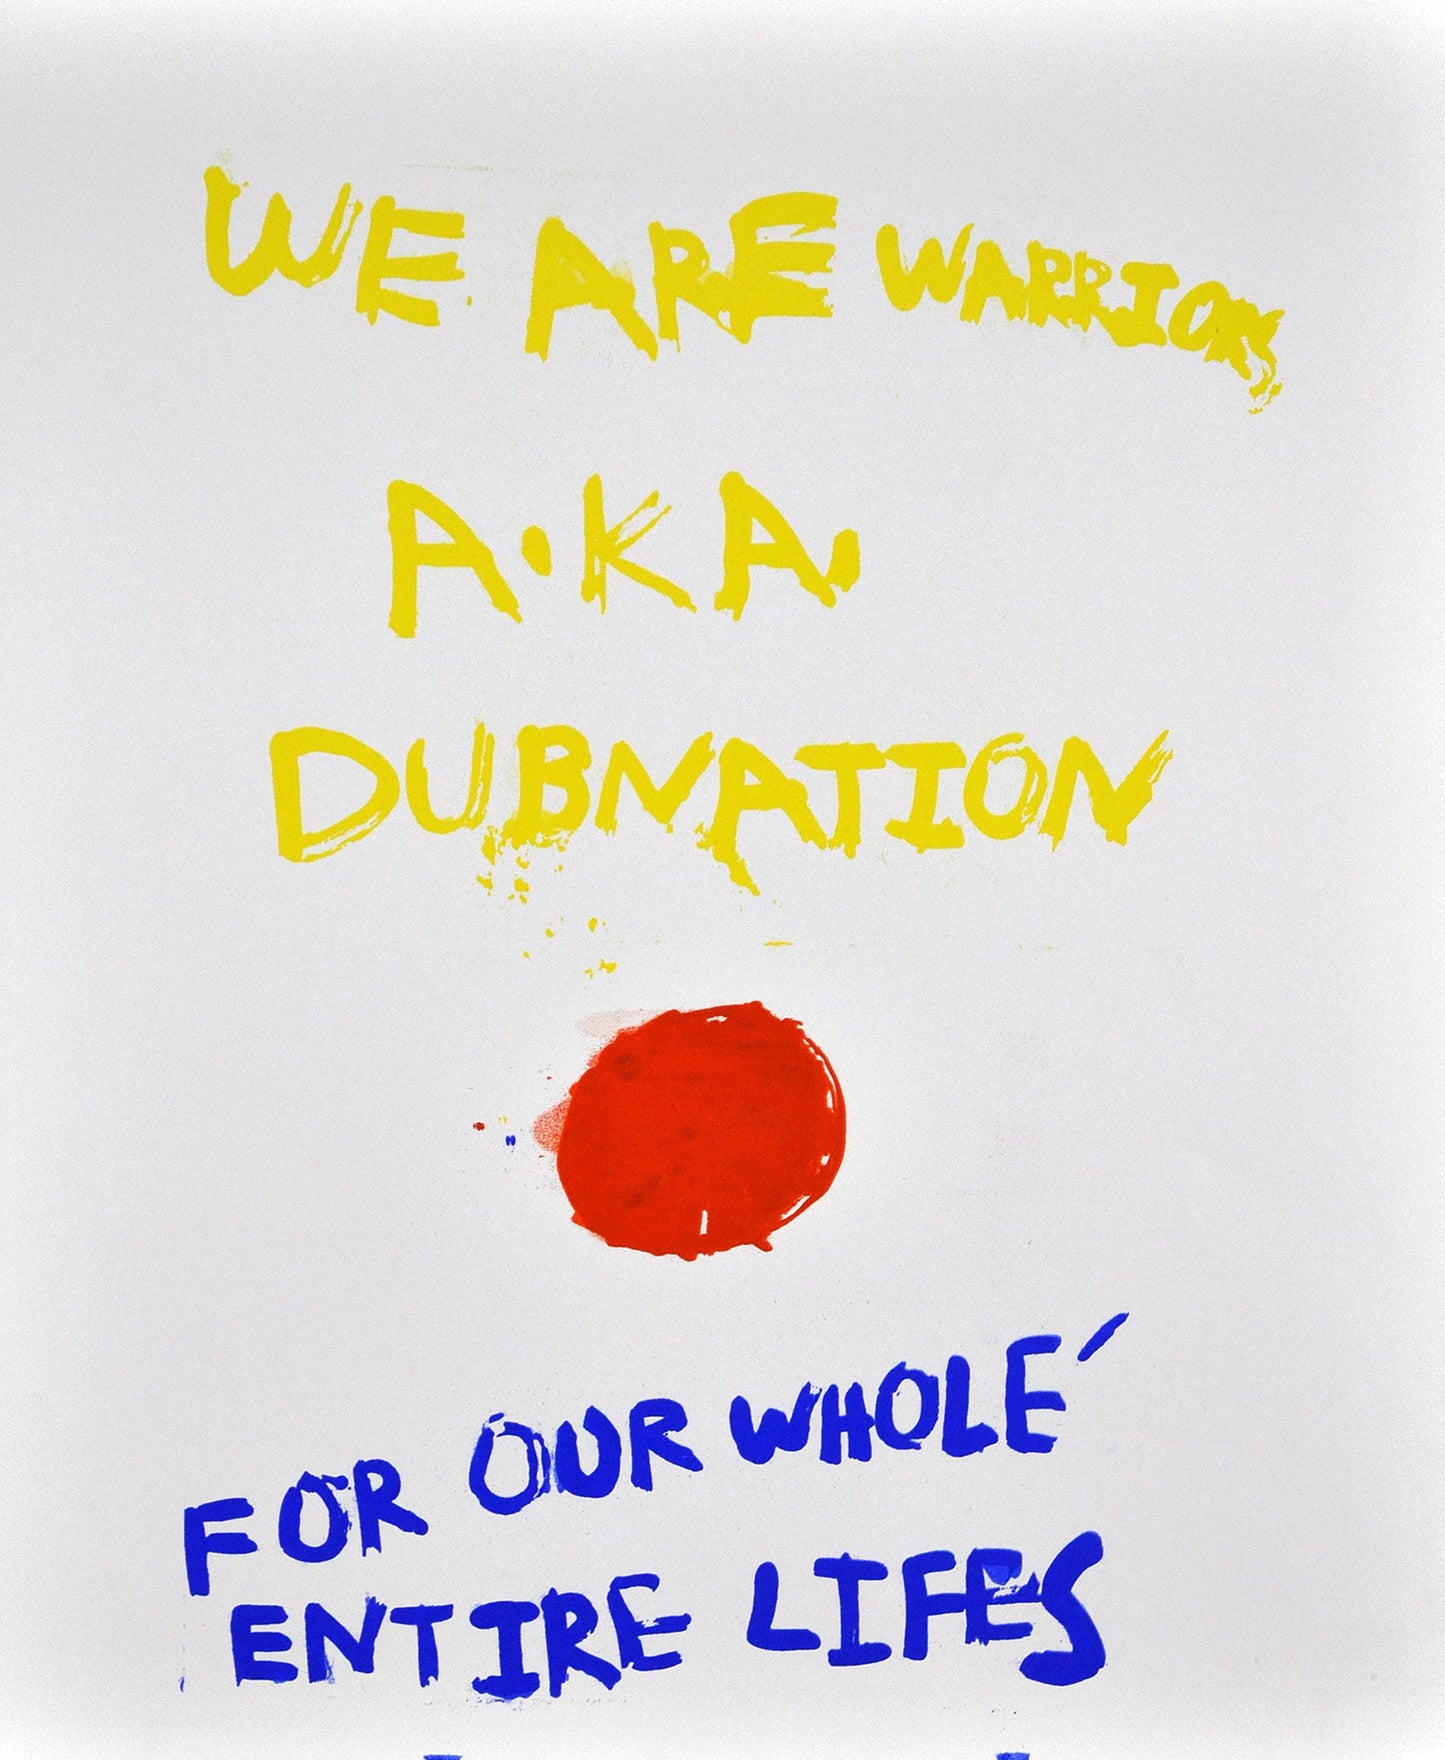 WE ARE WARRIORS
A.K.A.
DUBNATION
FOR OUR WHOLE´
ENTIRE LIFES